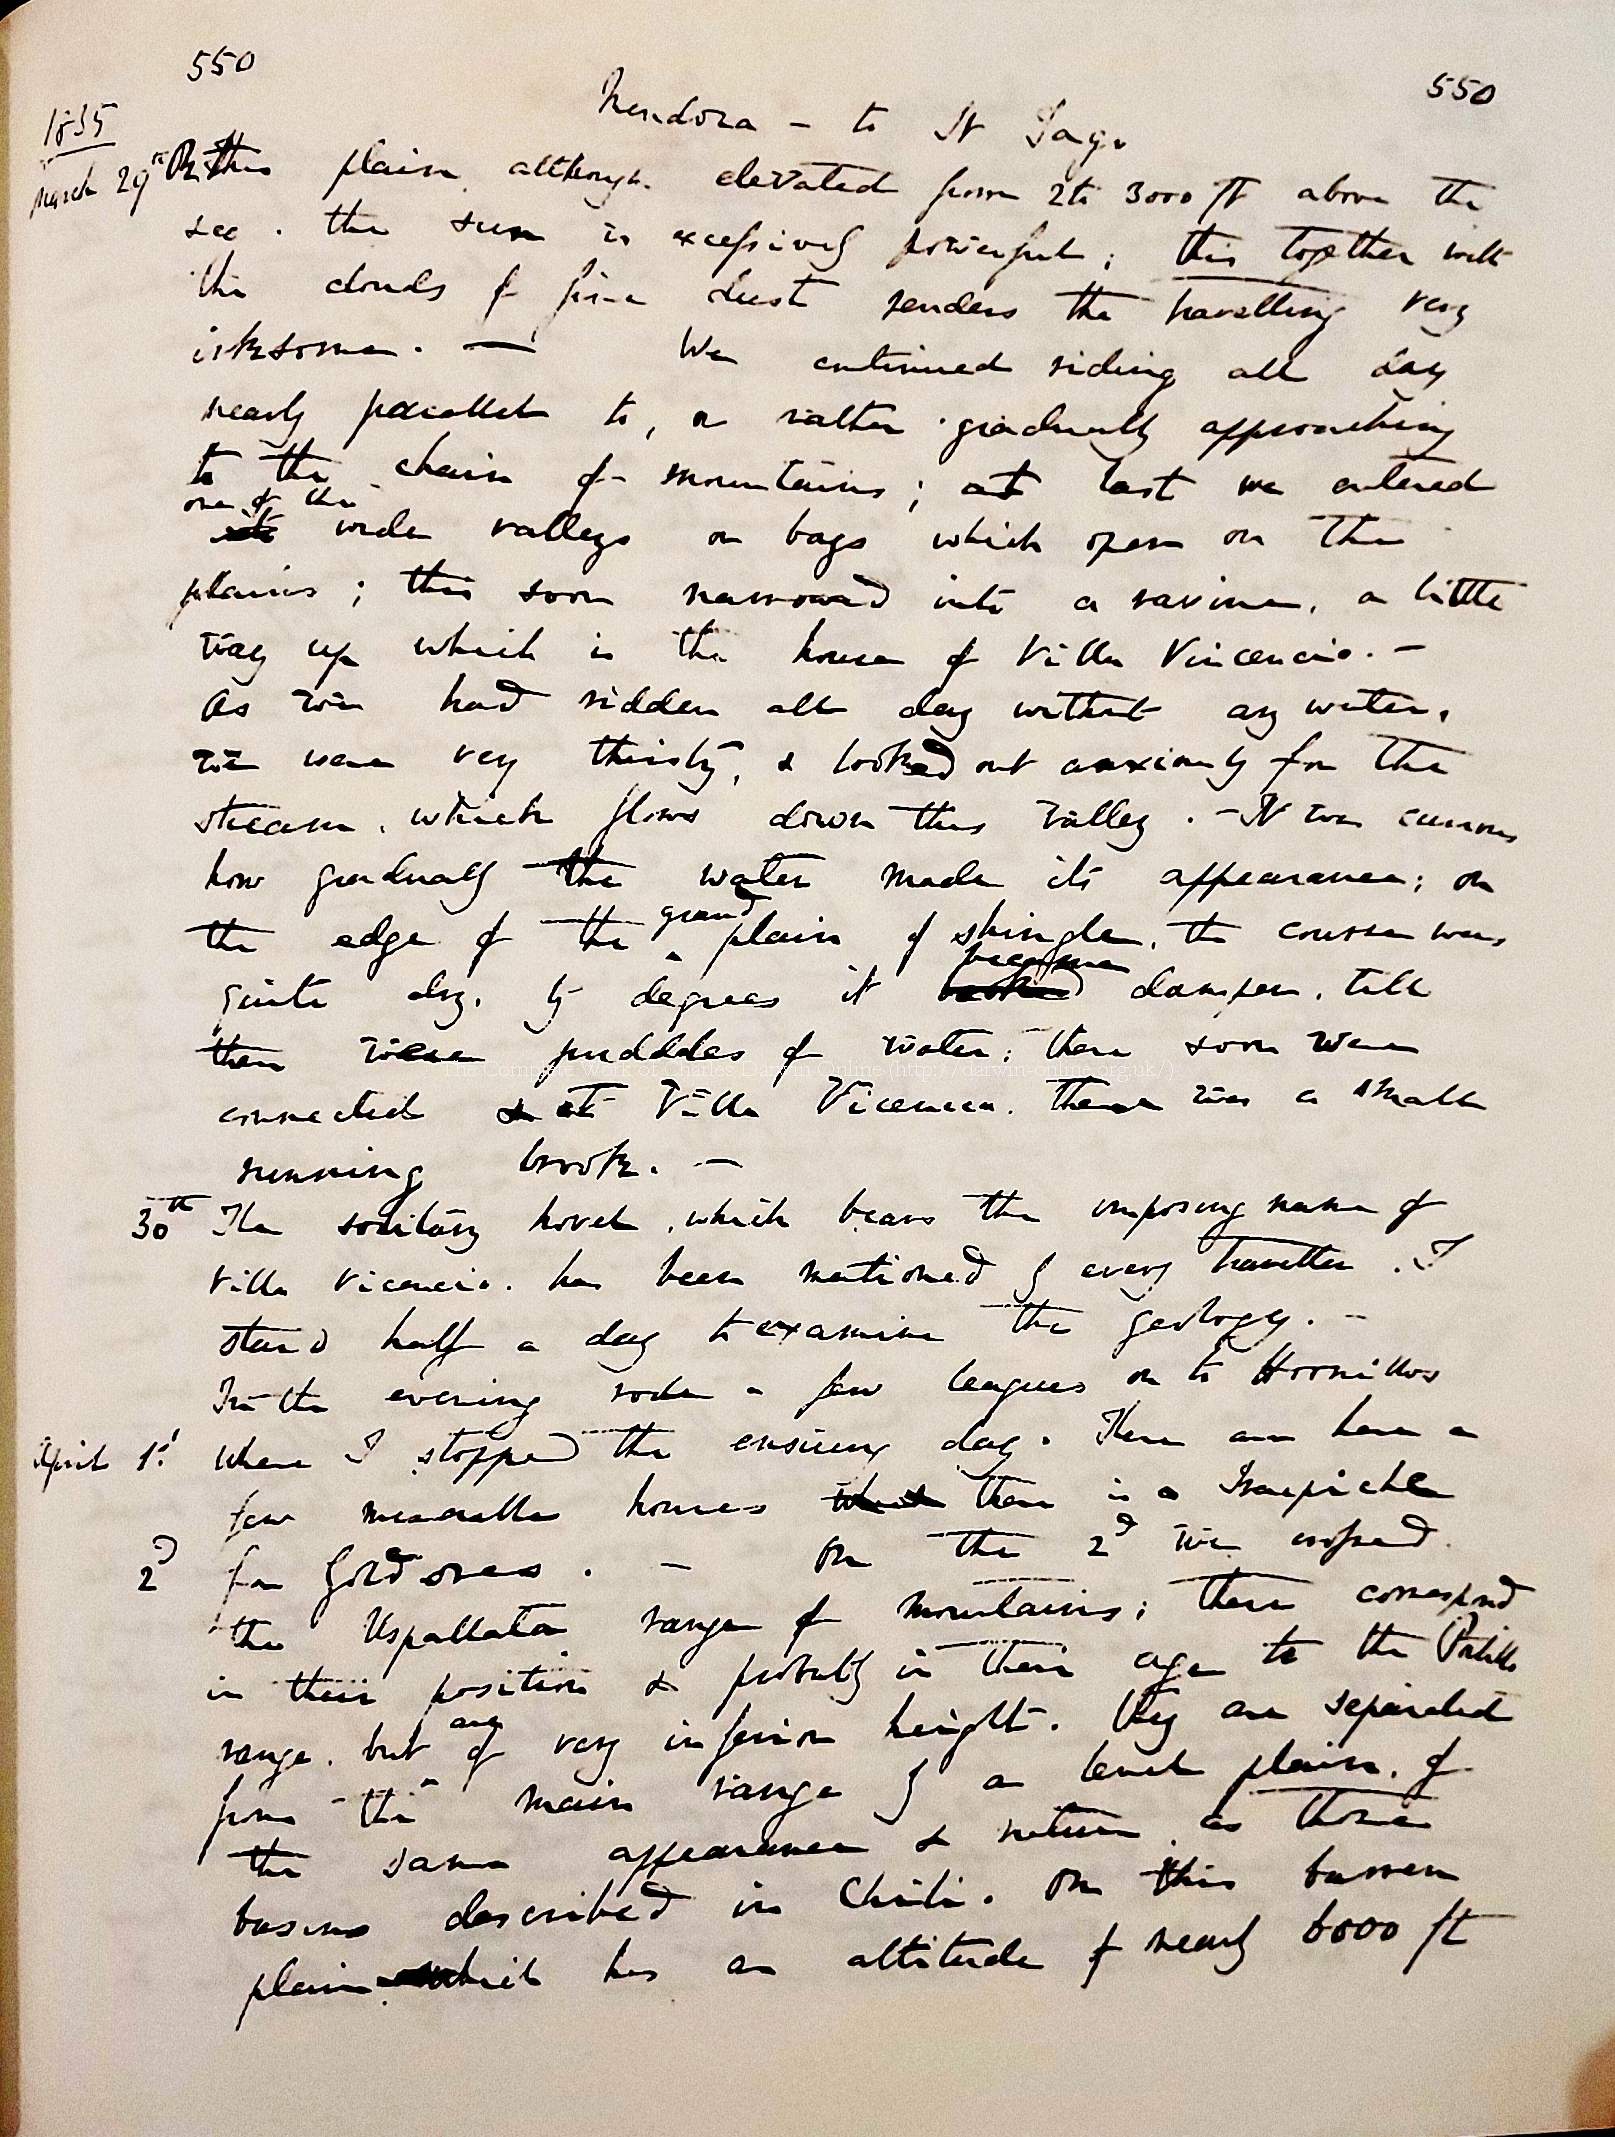 550
550
Mendoza — to St Jago
1835
March 29th On this plain, although elevated from 2 to 3000 ft above the
sea, the sun is excessively powerful; this together with
the clouds of fine dust renders the travelling very
irksome. — We continued riding all day
nearly parallel to, or rather gradually approaching
to the chain of mountains; at last we entered
one of the
wide valleys or bays which open on the
plains; this soon narrowed into a ravine, a little
way up which is the house of Villa Vincencio. —
As we had ridden all day without any water,
we were very thirsty, & looked out anxiously for the
stream, which flows down this valley. — It was curious
how gradually the water made its appearance; on
the edge of the grand plain of shingle, the course was
became
quite dry, by degrees it damper, till
there were puddles of water; these soon were
The Complete Work of Charles Darwin Online (http://darwin-online.org.uk/)
connected & at Villa Vicencio, there was a small
running brook. —
30th The solitary hovel, which bears the imposing name of
Villa Vicencio, has been mentioned by every traveller. I
staid half a day to examine the geology. —
In the evening rode a few leagues on to Hornillos
April 1st where I stopped the ensuing day. There are here a
few miserable houses there is a Trapiche
2d for Gold ores. — On the 2d we crossed
the Uspallata range of mountains; these correspond
in their position & probably in their age to the Portillo
range, but are of very inferior height. They are separated
from the main range by a level plain, of
the same appearance & nature, as those
basins described in Chili. On this barren
plain which has an altitude of nearly 6000 ft